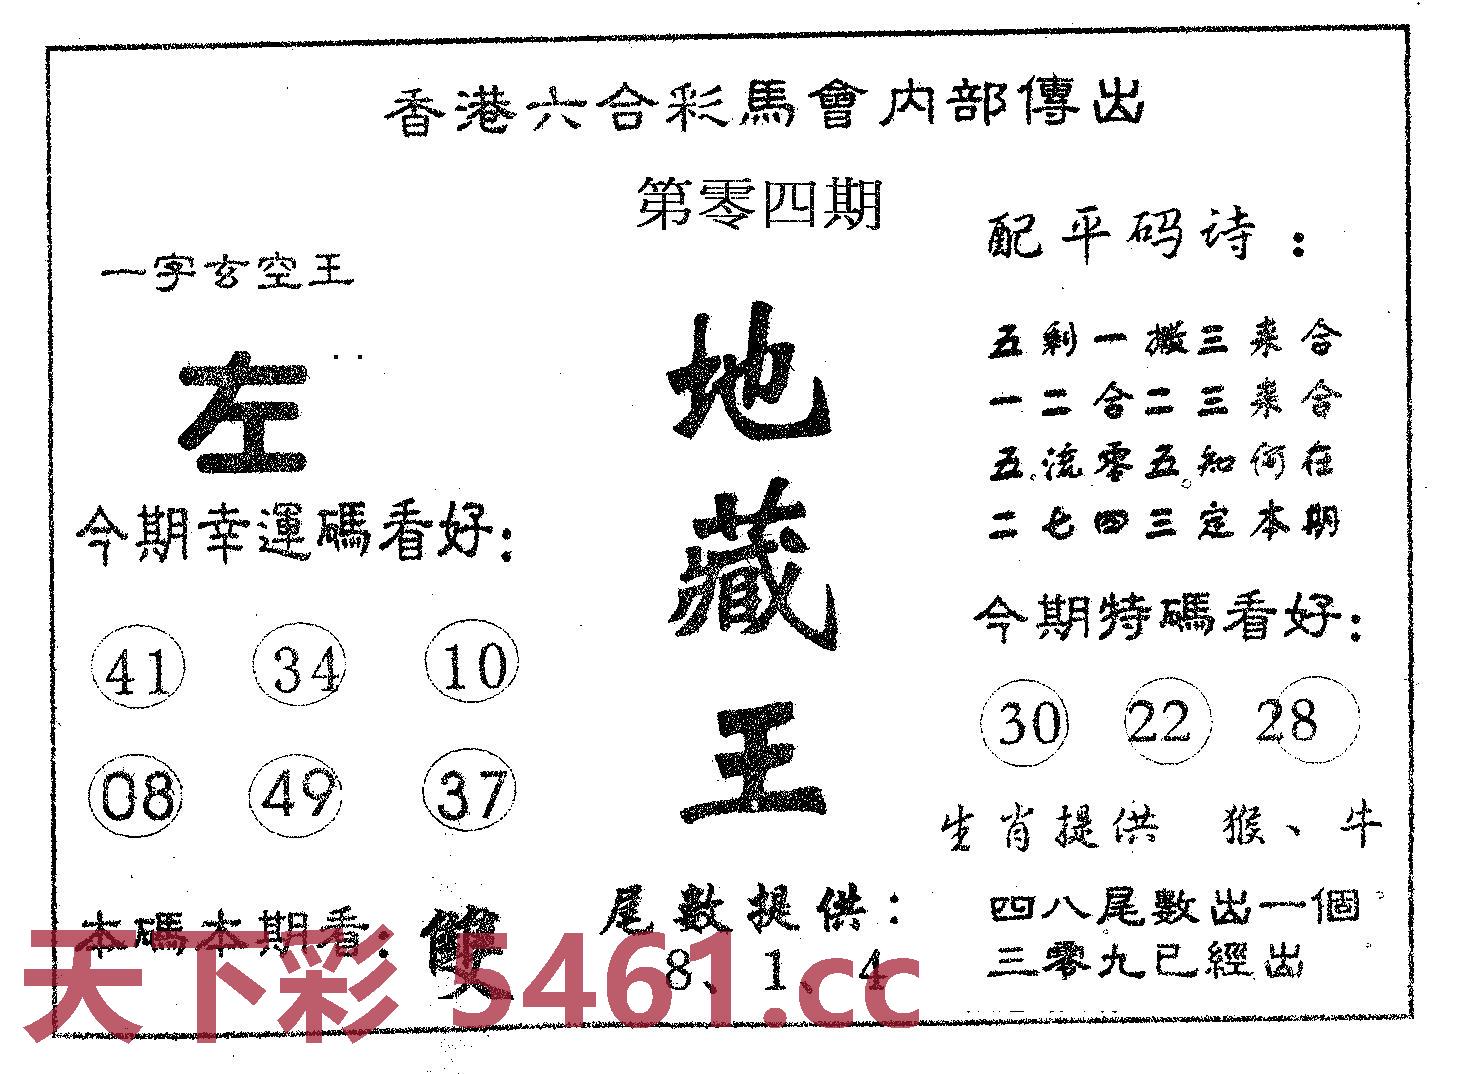 香港六合彩馬會内部傳出
第零四期
一字玄空王
左
今期幸運碼看好:
41 34 10
08 49 37
本碼本期看: 雙
地
藏
王
尾數提供:
8、1、4
配平码诗:
五剩一搬三来合
一二合二三来合
五流零五知何在
二七四三定本期
今期特碼看好:
30 22 28
生肖提供 猴、牛
四八尾數出一個
三零九已經出
天下彩 5461.cc